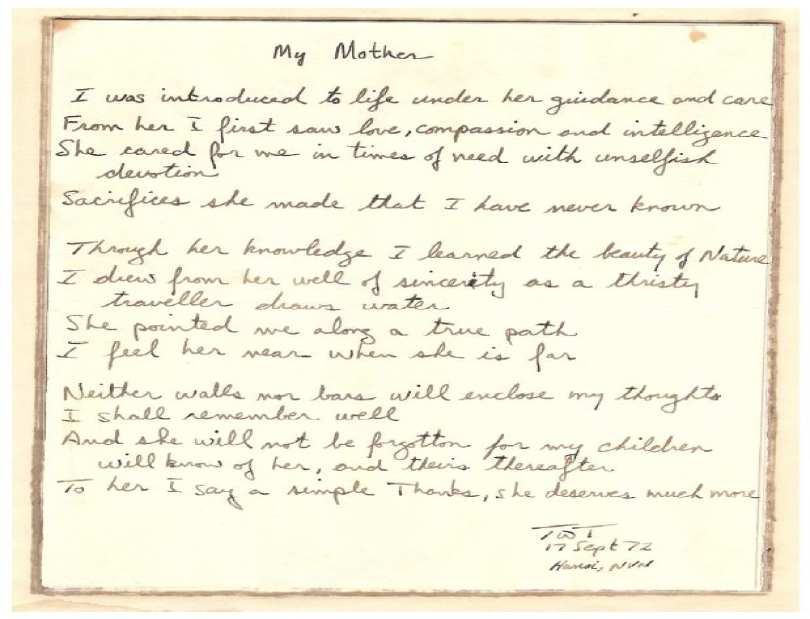 My Mother
I was introduced to life under her guidance and care
From her I first saw love, compassion and intelligence
She cared for me in times of need with unselfish
devotion
Sacrifices she made that I have never known
Through her knowledge I learned the beauty of Nature
I drew from her well of sincerity as a thristy
traveller draws water
She pointed me along a true path
I feel her near when she is far
Neither walls nor bars will enclose my thoughts
I shall remember well
And she will not be forgotton for my children
will know of her, and theirs thereafter
To her I say a simple Thanks, she deserves much more
TWT
17 Sept 72
Hanoi, NVN